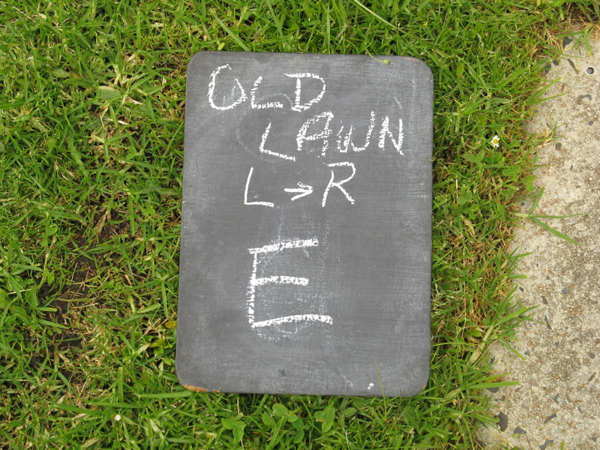 OLD
LAWN
L → R
E